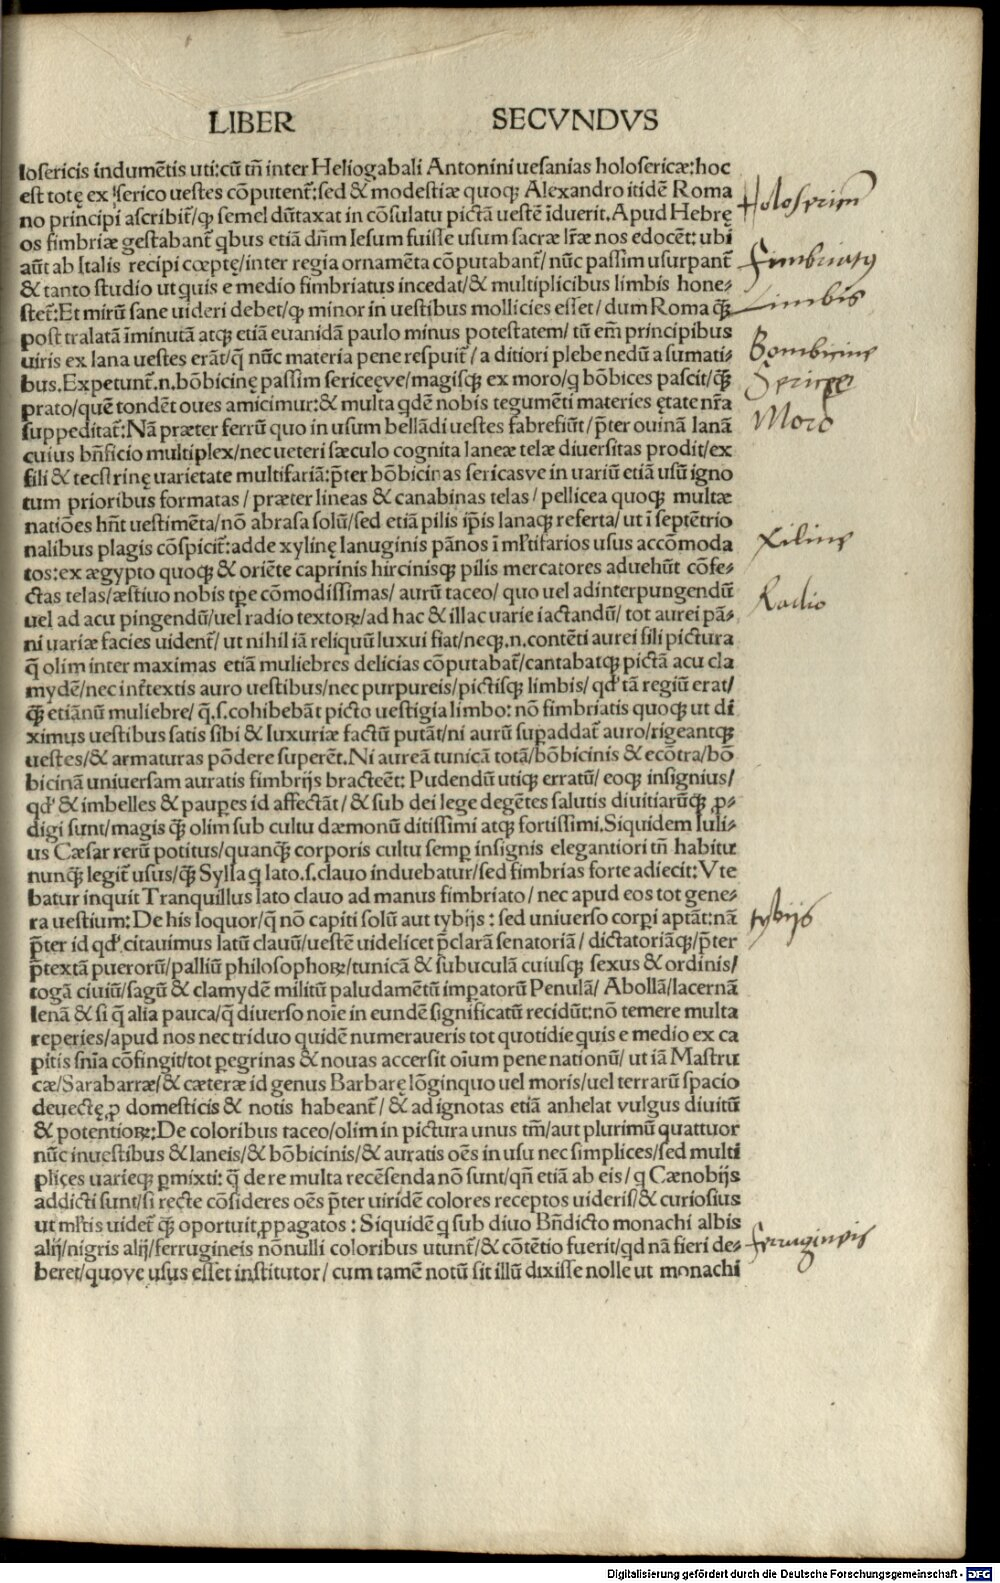 LIBER SECVNDVS
losericis indumẽtis uti:cũ tñ inter Heliogabali Antonini uesanias holosericæ:hoc
est totę ex serico uestes cõputent᷑:sed & modestiæ quoqꝫ Alexandro itidẽ Roma
no principi ascribit᷑/qꝫ semel dũtaxat in cõsulatu pictã uestẽ ĩduerit.Apud Hebrę
os fimbriæ gestabant᷑ qbus etiã dñm Iesum fuisse usum sacræ lr̃æ nos edocẽt: ubi
aũt ab Italis recipi cœptę/inter regia ornamẽta cõputabant᷑/nũc passim usurpant᷑
& tanto studio ut quis e medio fimbriatus incedat/& multiplicibus limbis hone⸗
stet᷑:Et mirũ sane uideri debet/qꝫ minor in uestibus mollicies esset/dum Roma q̃ꝫ
post tralatã ĩminutã atqꝫ etiã euanidã paulo minus potestatem/ tũ em̃ principibus
uiris ex lana uestes erãt/q̃ nũc materia pene respuit᷑/a ditiori plebe nedũ a sumati⸗
bus.Expetunt᷑.n.bõbicinę passim sericeęve/magisqꝫ ex moro/q bõbices pascit/q̃ꝫ
prato/quẽ tondẽt oues amicimur:& multa qdẽ nobis tegumẽti materies ętate nr̃a
suppeditat᷑:Nã præter ferrũ quo in usum bellãdi uestes fabrefiũt/p̃ter ouinã lanã
cuius bñficio multiplex/nec ueteri sæculo cognita laneæ telæ diuersitas prodit/ex
fili & tecstrinę uarietate multifariã:p̃ter bõbicinas sericasve in uariũ etiã usũ igno
tum prioribus formatas/ præter lineas & canabinas telas/ pellicea quoqꝫ multæ
natiões hñt uestimẽta/nõ abrasa solũ/sed etiã pilis ip̃is lanaqꝫ referta/ut ĩ septẽtrio
nalibus plagis cõspicit᷑:adde xylinę lanuginis pãnos ĩ ml̃tifarios usus accõmoda
tos:ex ægypto quoqꝫ & oriẽte caprinis hircinisqꝫ pilis mercatores aduehũt cõfe⸗
ctas telas/æstiuo nobis tp̃e cõmodissimas/ aurũ taceo/ quo uel ad interpungendũ
uel ad acu pingendũ/uel radio textoꝝ/ad hac & illac uarie iactandũ/ tot aurei pã⸗
ni uariæ facies uident᷑/ ut nihil iã reliquũ luxui fiat/neqꝫ.n.contẽti aurei fili pictura
q̃ olim inter maximas etiã muliebres delicias cõputabat᷑/cantabatqꝫ pictã acu cla
mydẽ/nec inr̃textis auro uestibus/nec purpureis/pictisqꝫ limbis/ qd' tã regiũ erat/
q̃ꝫ etiãnũ muliebre/ q̃.s.cohibebãt picto uestigia limbo: nõ fimbriatis quoqꝫ ut di
ximus uestibus satis sibi & luxuriæ factũ putãt/ni aurũ suꝑaddat᷑ auro/rigeantqꝫ
uestes/& armaturas põdere superẽt.Ni aureã tunicã totã/bõbicinis & ecõtra/bõ
bicinã uniuersam auratis fimbrijs bracteẽt: Pudendũ utiqꝫ erratũ/ eoqꝫ insignius/
qd' & imbelles & pauꝑes id affectãt/ & sub dei lege degẽtes salutis diuitiarũq̃ꝫ ꝓ⸗
digi sunt/magis q̃ꝫ olim sub cultu dæmonũ ditissimi atqꝫ fortissimi.Siquidem Iuli⸗
us Cæsar rerũ potitus/quanq̃ꝫ corporis cultu semꝑ insignis elegantiori tñ habitu
nunq̃ꝫ legit᷑ usus/q̃ꝫ Sylla q lato.s.clauo induebatur/sed fimbrias forte adiecit: Vte
batur inquit Tranquillus lato clauo ad manus fimbriato/ nec apud eos tot gene⸗
ra uestium: De his loquor/q̃ nõ capiti solũ aut tybijs : sed uniuerso corꝑi aptãt:nã
p̃ter id qd' citauimus latũ clauũ/uestẽ uidelicet p̃clarã senatoriã/ dictatoriãqꝫ/p̃ter
p̃textã puerorũ/palliũ philosophoꝝ/tunicã & subuculã cuiusqꝫ sexus & ordinis/
togã ciuiũ/sagũ & clamydẽ militũ paludamẽtũ imꝑatorũ Penulã/ Abollã/lacernã
lenã & si q̃ alia pauca/q̃ diuerso noĩe in eundẽ significatũ recidũt:nõ temere multa
reperies/apud nos nec triduo quidẽ numeraueris tot quotidie quis e medio ex ca
pitis sñia cõfingit/tot ꝑegrinas & nouas accersit oĩum pene nationũ/ ut iã Mastru
cæ/Sarabarræ/& cæteræ id genus Barbarę lõginquo uel moris/uel terrarũ spacio
deuectę ꝓ domesticis & notis habeant᷑/ & ad ignotas etiã anhelat vulgus diuitũ
& potentioꝝ:De coloribus taceo/olim in pictura unus tm̃/aut plurimũ quattuor
nũc in uestibus & laneis/& bõbicinis/& auratis oẽs in usu nec simplices/sed multi
plices uarieqꝫ ꝑmixti: q̃ de re multa recẽsenda nõ sunt/qñ etiã ab eis/q Cænobijs
addicti sunt/si recte cõsideres oẽs p̃ter uiridẽ colores receptos uideris/& curiosius
ut ml̃tis uidet᷑ q̃ꝫ oportuit ꝓpagatos : Siquidẽ q sub diuo Bñdicto monachi albis
alij/nigris alij/ferrugineis nõnulli coloribus utunt᷑/& cõtẽtio fuerit/qd nã fieri de⸗
beret/quove usus esset institutor/ cum tamẽ notũ sit illũ dixisse nolle ut monachi
Holosericum
Fimbriatus
Limbis
Bombicine
Sericee
Moro
Xiline
Radio
tybijs
ferrugineis
Digitalisierung gefördert durch die Deutsche Forschungsgemeinschaft - DFG